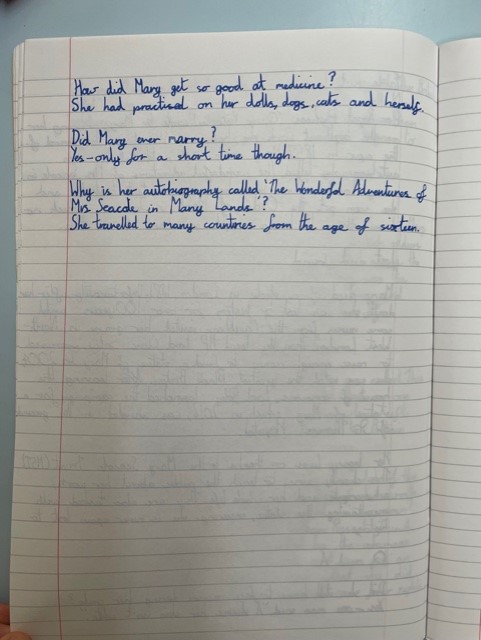 How did Mary get so good at medicine?
She had practised on her dolls, dogs, cats and herself.
Did Mary ever marry?
Yes - only for a short time though.
Why is her autobiography called 'The Wonderful Adventures of
Mrs Seacole in Many Lands'?
She travelled to many countries from the age of sixteen.